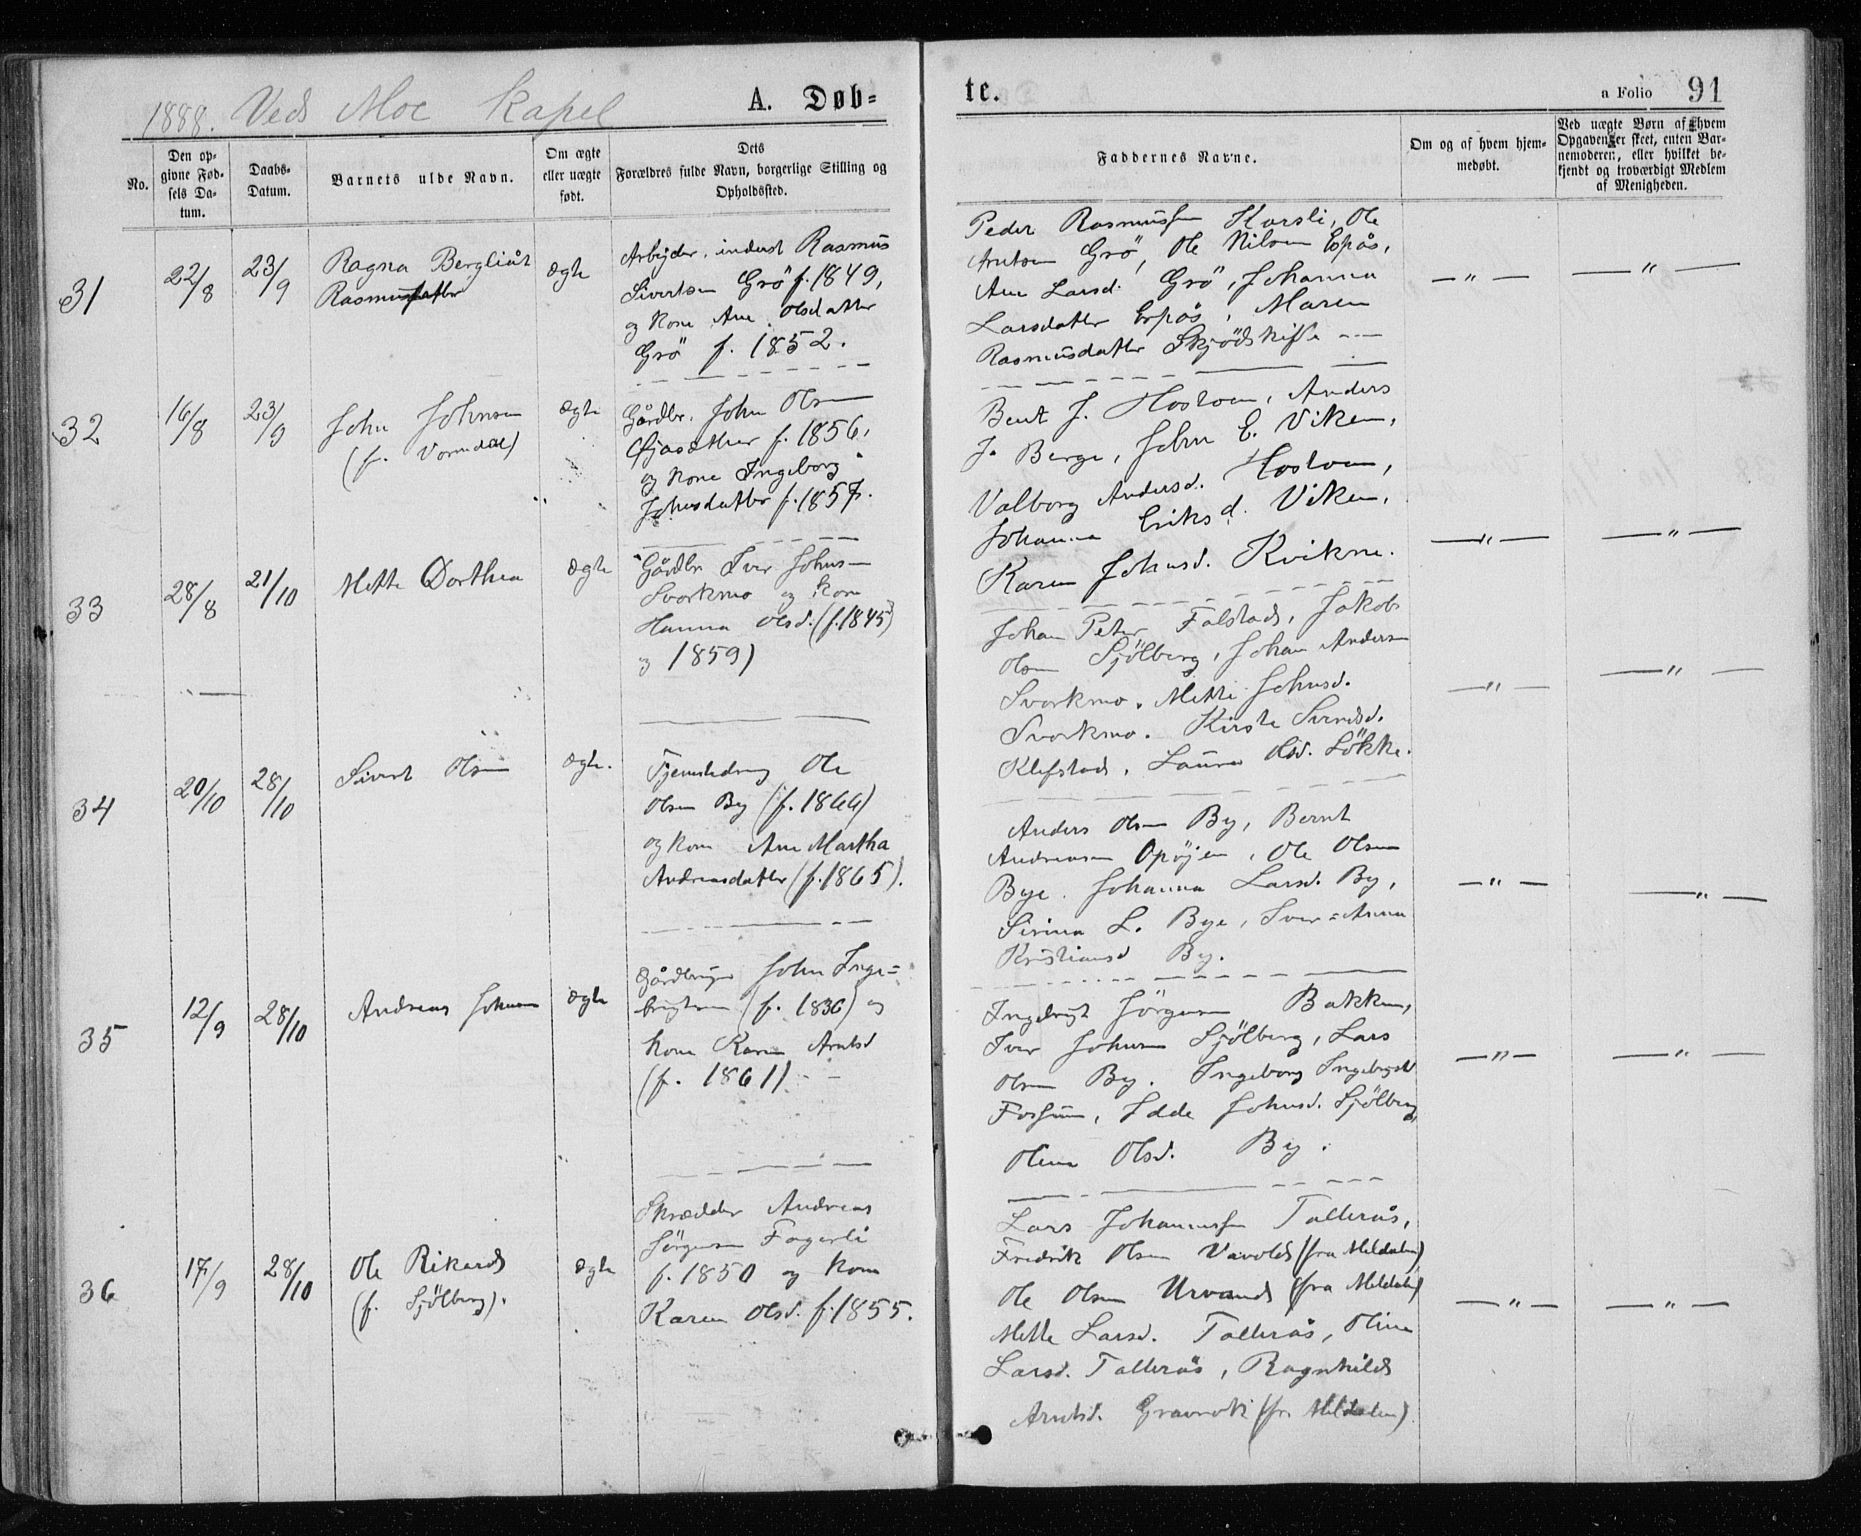 1888. Veds Moe Kapel
A. Døb=
te.
a Folio 91
No.
Den op-
givne Fød-
sels Da-
tum.
Daabs-
Datum.
Barnets ulde Navn.
Om ægte
eller uægte
født.
Dets
Forældres fulde Navn, borgerlige Stilling og
Opholdssted.
Faddernes Navne.
Om og af hvem hjem-
medøbt.
Ved uægte Børn af hvem
Opgaven er skeet, enten Bar-
nemoderen, eller hvilket be-
kjendt og troværdigt Medlem
af Menigheden.
31
22/8
23/9
Ragna Bergliåt
Rasmusdatter
ægte
Arbejder, inderst Rasmus
Sivertsen Grö f. 1849,
og Kone Ane Olsdatter
Grö f. 1852.
Peder Rasmussen Korsli, Ole
Arntsen Grö, Ole Nilsen Espås,
Ane Larsd. Grö, Johanna
Larsdatter Espås, Maren
Rasmusdatter Skjödskift
— " —
— " —
32
16/8
23/9
John Johnsen
(f. Vormdal)
ægte
Gårdbr. John Olsen
f. 1856,
og Kone Ingeborg
Johnsdatter f. 1857.
Bent J. Hostoen, Anders
J. Berge, John E. Viken,
Valborg Andersd. Hostoen,
Johanna Eriksd. Viken,
Karen Johnsd. Kvikne.
— " —
— " —
33
28/8
21/10
Mette Dorthea
ægte
Gårdbr Iver Johnsen
Svorkmo og Kone
Hanna Olsd. (f. 1845
og 1859)
Johan Peter Folstad, Jakob
Olsen Sjölberg, Johan Andersen
Svorkmo, Mette Johnsd.
Svorkmo. Kirste Svendsd.
Klefstad, Laura Olsd. Lökke.
— " —
— " —
34
20/10
28/10
Sivert Olsen
ægte.
Tjenstedreng Ole
Olsen By (f. 1866)
og Kone Ane Martha
Andreasdatter (f. 1865).
Anders Olsen By, Bernt
Andreasen Opöjen, Ole Olsen
Bye. Johanna Larsd. By,
Sirina L. Bye,
Kristiansd By.
— " —
— " —
35
12/9
28/10
Andreas Johnsen
ægte
Gårdbruger John Inge=
brigtsen (f. 1836) og
Kone Karen Arntsd
(f. 1861)
Ingebrigt Jörgensen Bakken,
Iver Johnsen Sjölberg, Lars
Olsen By. Ingeborg Ingebrigtsd
Fossum, Idde Johnsd. Sjölberg,
Olina Olsd. By.
— " —
— " —
36
17/9
28/10
Ole Rikard
(f. Sjölberg).
ægte
Skrædder Andreas
Jörgensen Fagerli
f. 1850 og Kone
Karen Olsd. f. 1855.
Lars Johannessen Tallerås,
Fredrik Olsen Vavold (fra Meldalen)
Ole Olsen Urvand (fra Meldalen)
Mette Larsd. Tallerås, Olina
Larsd. Tallerås, Ragnhild
Arntsd. Gravrok (fra Meldalen)
— " —
— " —